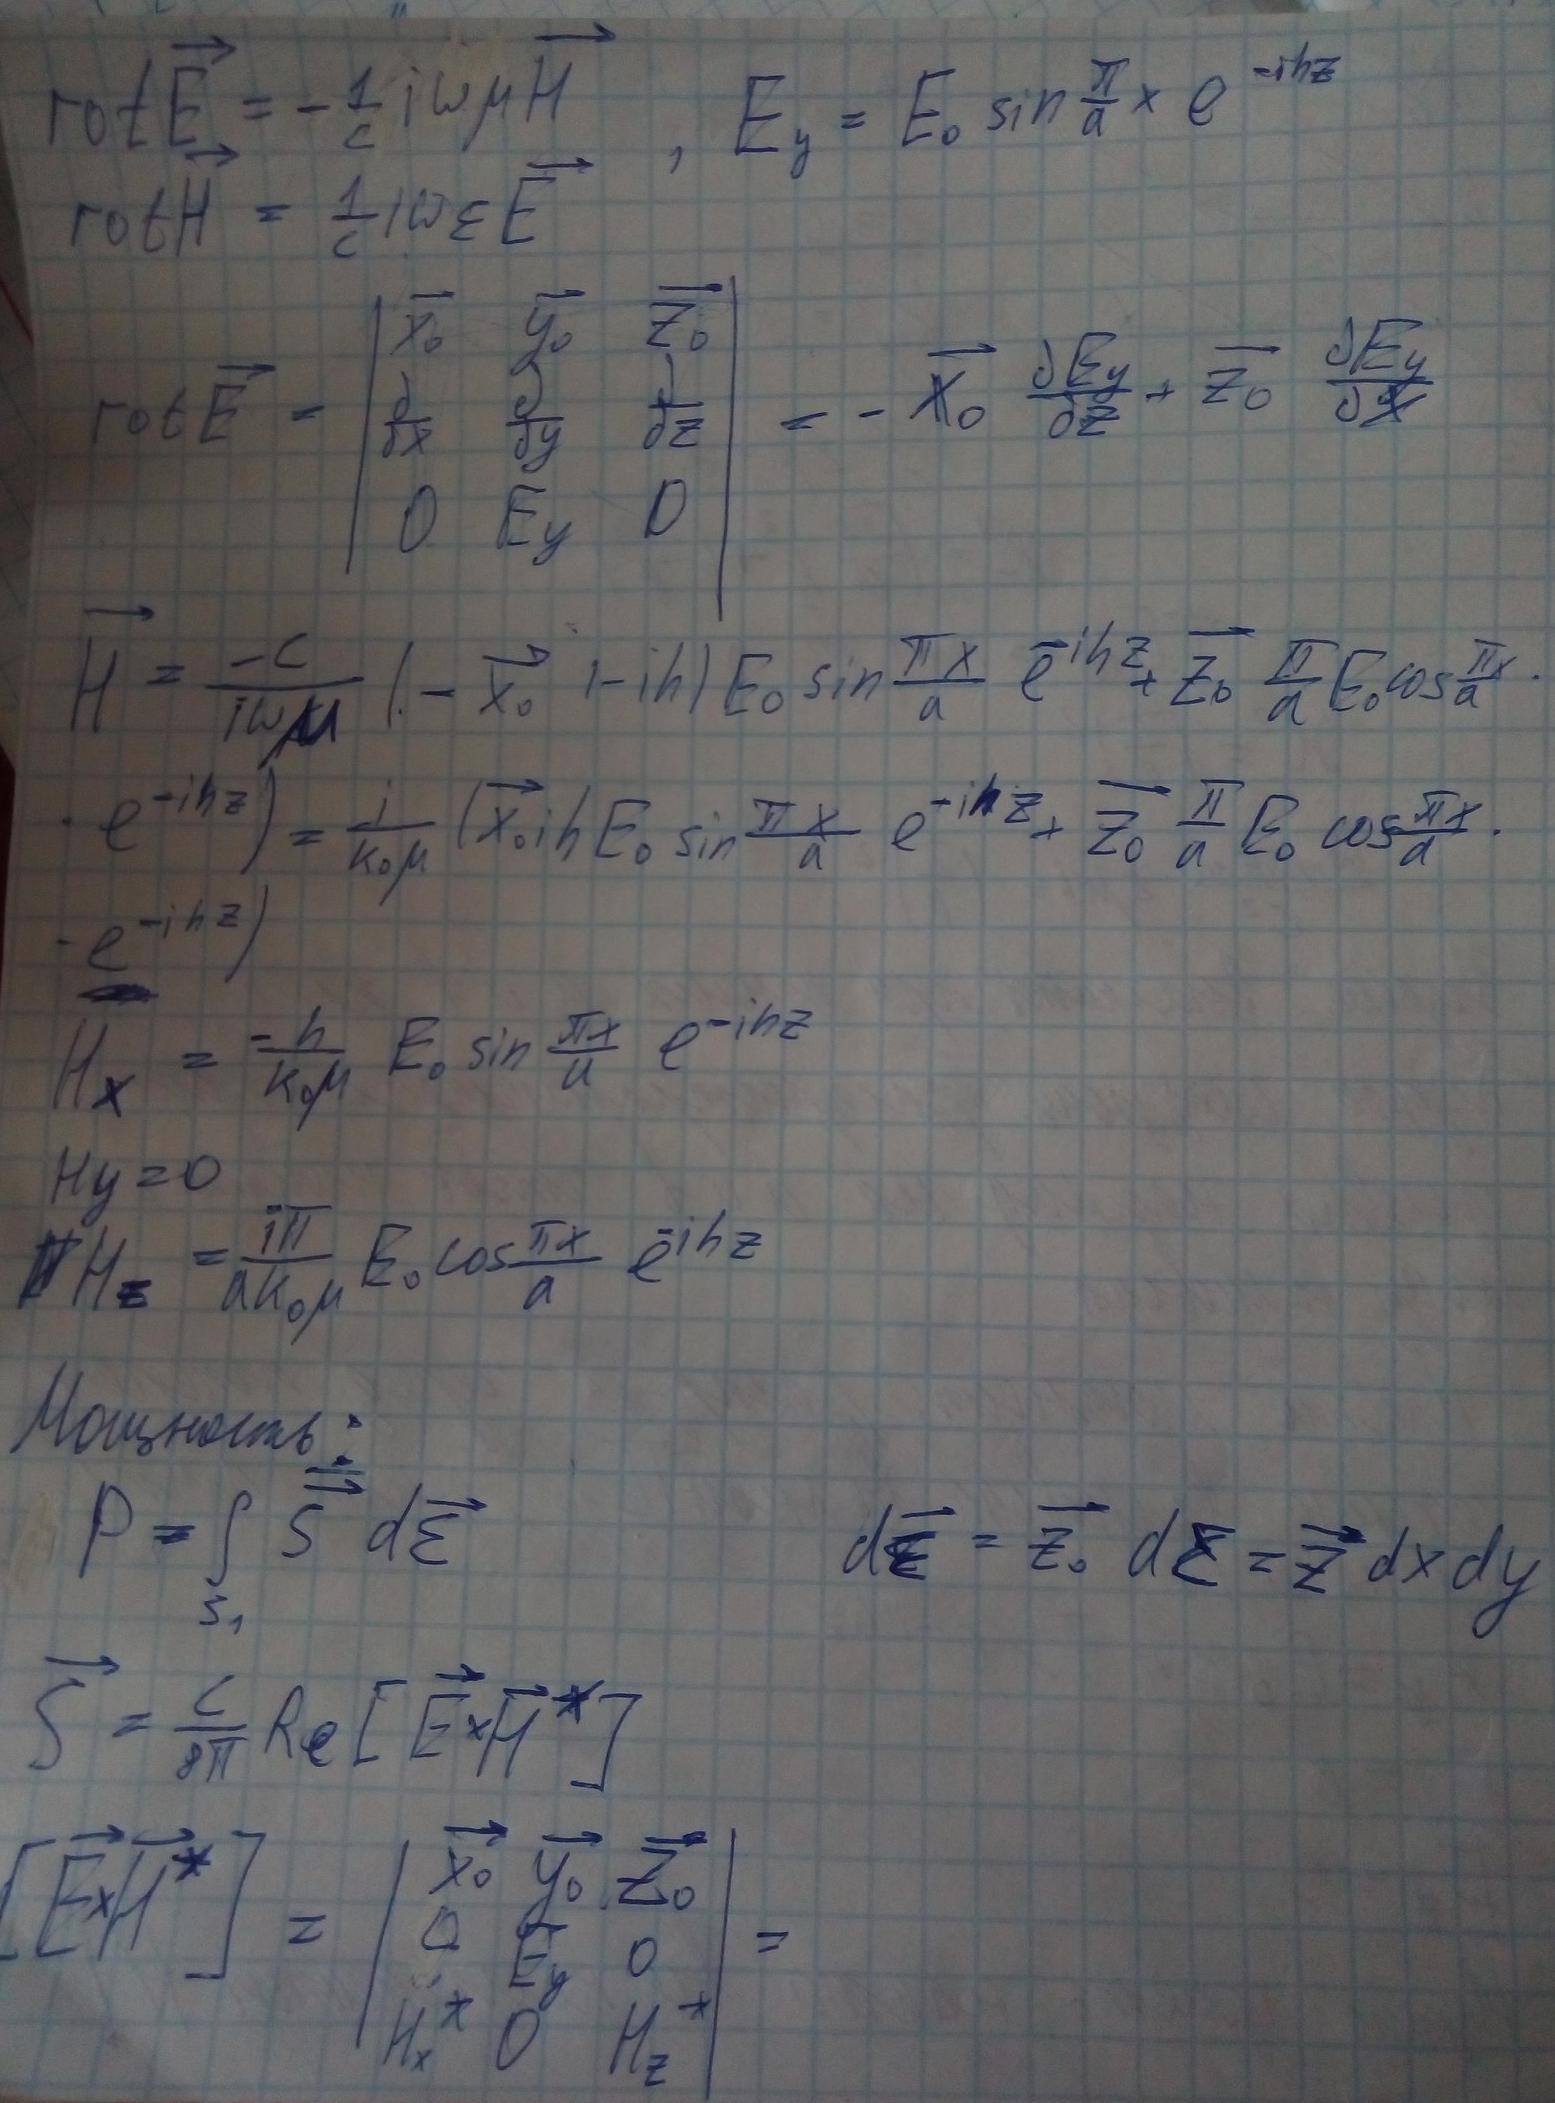 rot E⃗ = - 1/c iωμH⃗ , E_y = E₀ sin π/a x e^{-ihz}
rot H⃗ = 1/c iωεE⃗
rot E⃗ = | x⃗₀ y⃗₀ z⃗₀ |
| ∂/∂x ∂/∂y ∂/∂z | = - x⃗₀ ∂E_y/∂z + z⃗₀ ∂E_y/∂x
| 0 E_y 0 |
H⃗ = -c/iωμ (- x⃗₀ (-ih) E₀ sin πx/a e^{-ihz} + z⃗₀ π/a E₀ cos πx/a ·
· e^{-ihz}) = i/k₀μ (x⃗₀ ih E₀ sin πx/a e^{-ihz} + z⃗₀ π/a E₀ cos πx/a ·
· e^{-ihz})
H_x = -h/k₀μ E₀ sin πx/a e^{-ihz}
H_y = 0
H_z = iπ/ak₀μ E₀ cos πx/a e^{-ihz}
Мощность:
P = ∫_{S₁} S⃗ dΣ⃗ dΣ⃗ = z⃗₀ dΣ = z⃗ dx dy
S⃗ = c/8π Re [E⃗ × H⃗*]
[E⃗ × H⃗*] = | x⃗₀ y⃗₀ z⃗₀ |
| 0 E_y 0 | =
| H_x* 0 H_z* |